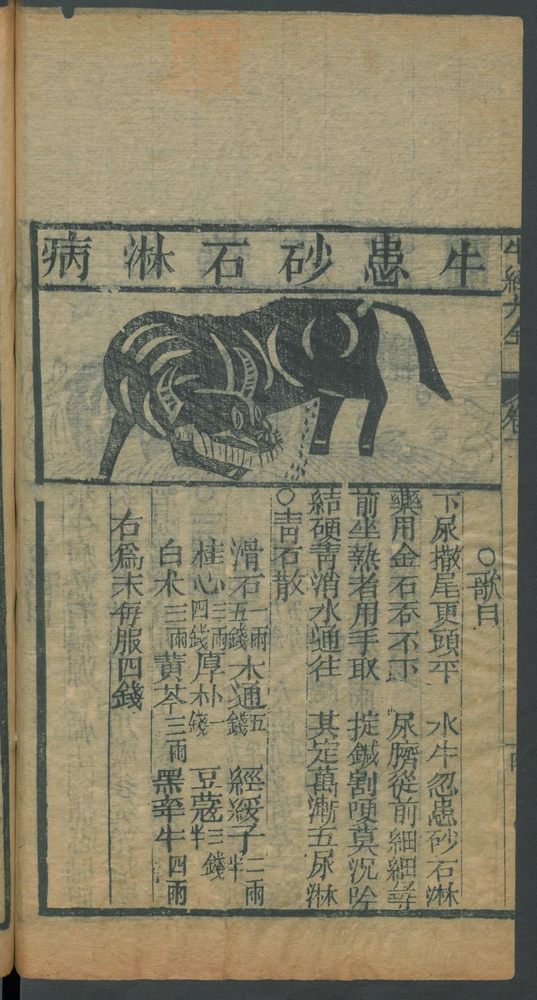 牛患砂石淋病
牛經大全
○歌曰
下尿撒尾更頭平 水牛忽患砂石淋
藥用金石吞不下 尿臍從前細細尋
前坐熱者用手取 掟鍼割哽莫沉吟
結硬靑消水通往 其定萬漸五尿淋
○靑石散
滑石一兩五錢 木通五錢 經綬子二兩半
桂心三兩四錢 厚朴一錢 豆蔻三錢半
白朮三兩 黄芩三兩 黑牽牛四兩
右爲末每服四錢